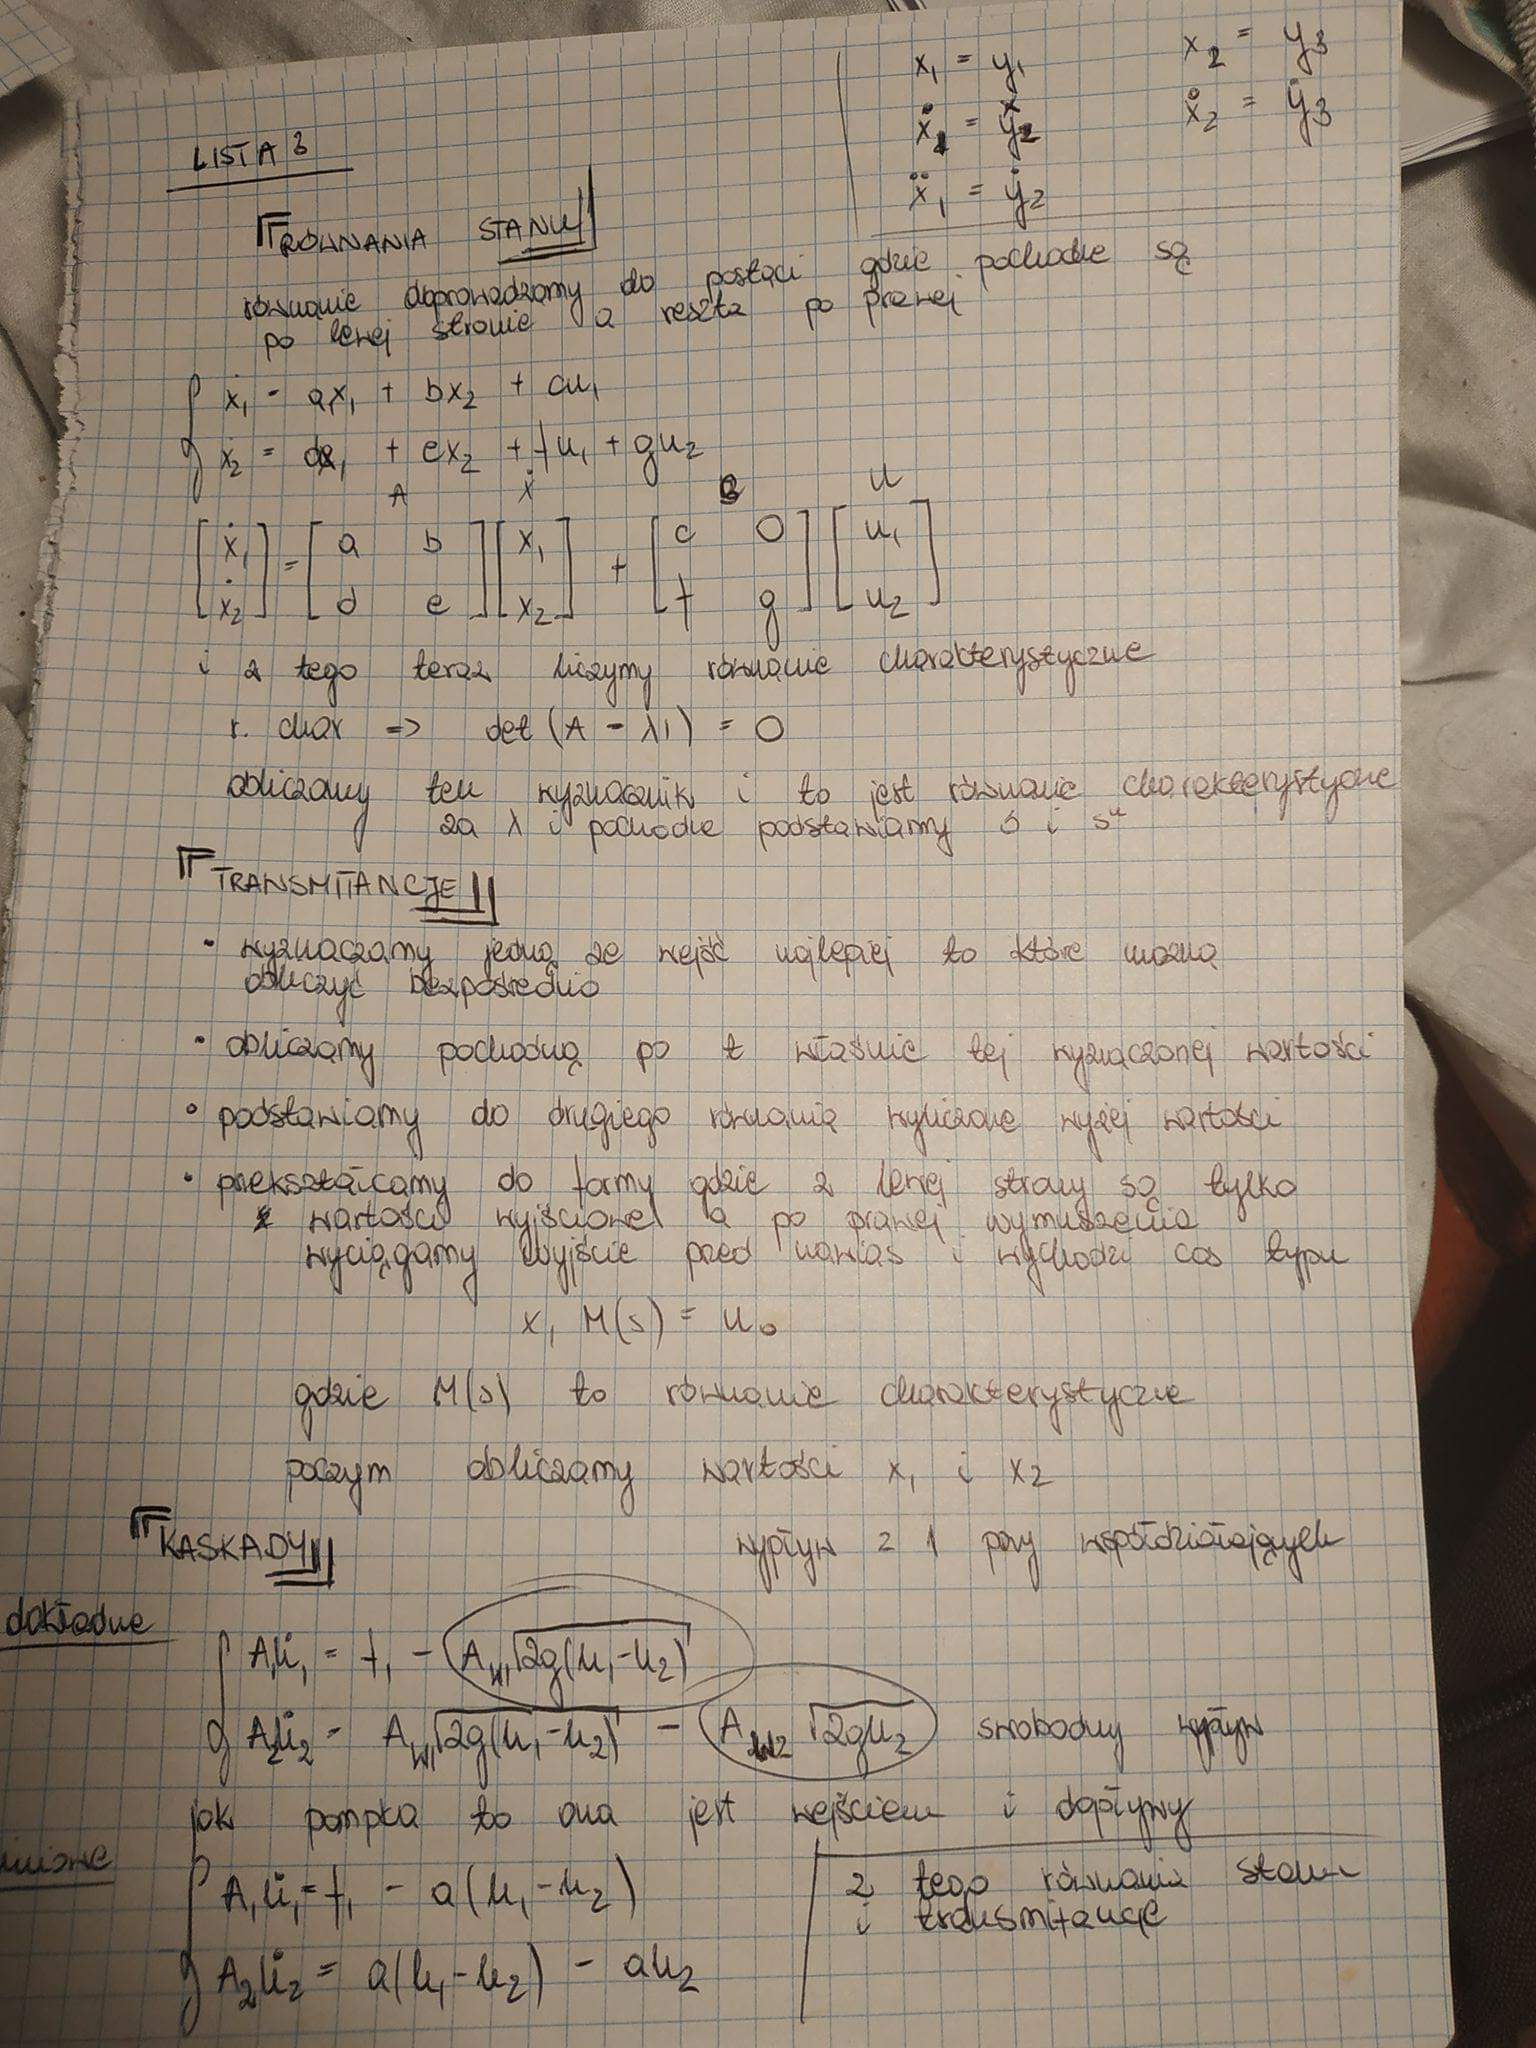 x₁ = y₁ x₂ = y₃
ẋ₁ = y₂ ẋ₂ = ẏ₃
ẍ₁ = ẏ₂
LISTA 3
RÓWNANIA STANU
równanie doprowadzamy do postaci gdzie pochodne są
po lewej stronie a reszta po prawej
ẋ₁ = ax₁ + bx₂ + cu₁
ẋ₂ = dx₁ + ex₂ + fu₁ + gu₂
A X B U
[ẋ₁] = [a b] [x₁] + [c 0] [u₁]
[ẋ₂] [d e] [x₂] [f g] [u₂]
i z tego teraz liczymy równanie charakterystyczne
r. char => det (A - λI) = 0
obliczamy ten wyznacznik i to jest równanie charakterystyczne
za λ i pochodne podstawiamy s i sⁿ
TRANSMITANCJE
• wyznaczamy jedną ze wejść najlepiej to które można
obliczyć bezpośrednio
• obliczamy pochodną po t właśnie tej wyznaczonej wartości
• podstawiamy do drugiego równania wyliczone wyżej wartości
• przekształcamy do formy gdzie z lewej strony są tylko
wartości wyjściowe a po prawej wymuszenia
wyciągamy wyjście przed nawias i wychodzi cos typu
x₁ M(s) = u₀
gdzie M(s) to równanie charakterystyczne
poczym obliczamy wartości x₁ i x₂
KASKADY wypływ z 1 przy współdziałających
dokładne
A₁ḣ₁ = f₁ - A_w₁√2g(h₁-h₂)
A₂ḣ₂ = A_w₁√2g(h₁-h₂) - A_w₂ √2gh₂ swobodny wypływ
jak pompka to ona jest wejściem i dopływy
A₁ḣ₁ = f₁ - a(h₁-h₂) z tego równania stanu
i transmitancje
A₂ḣ₂ = a(h₁-h₂) - ah₂